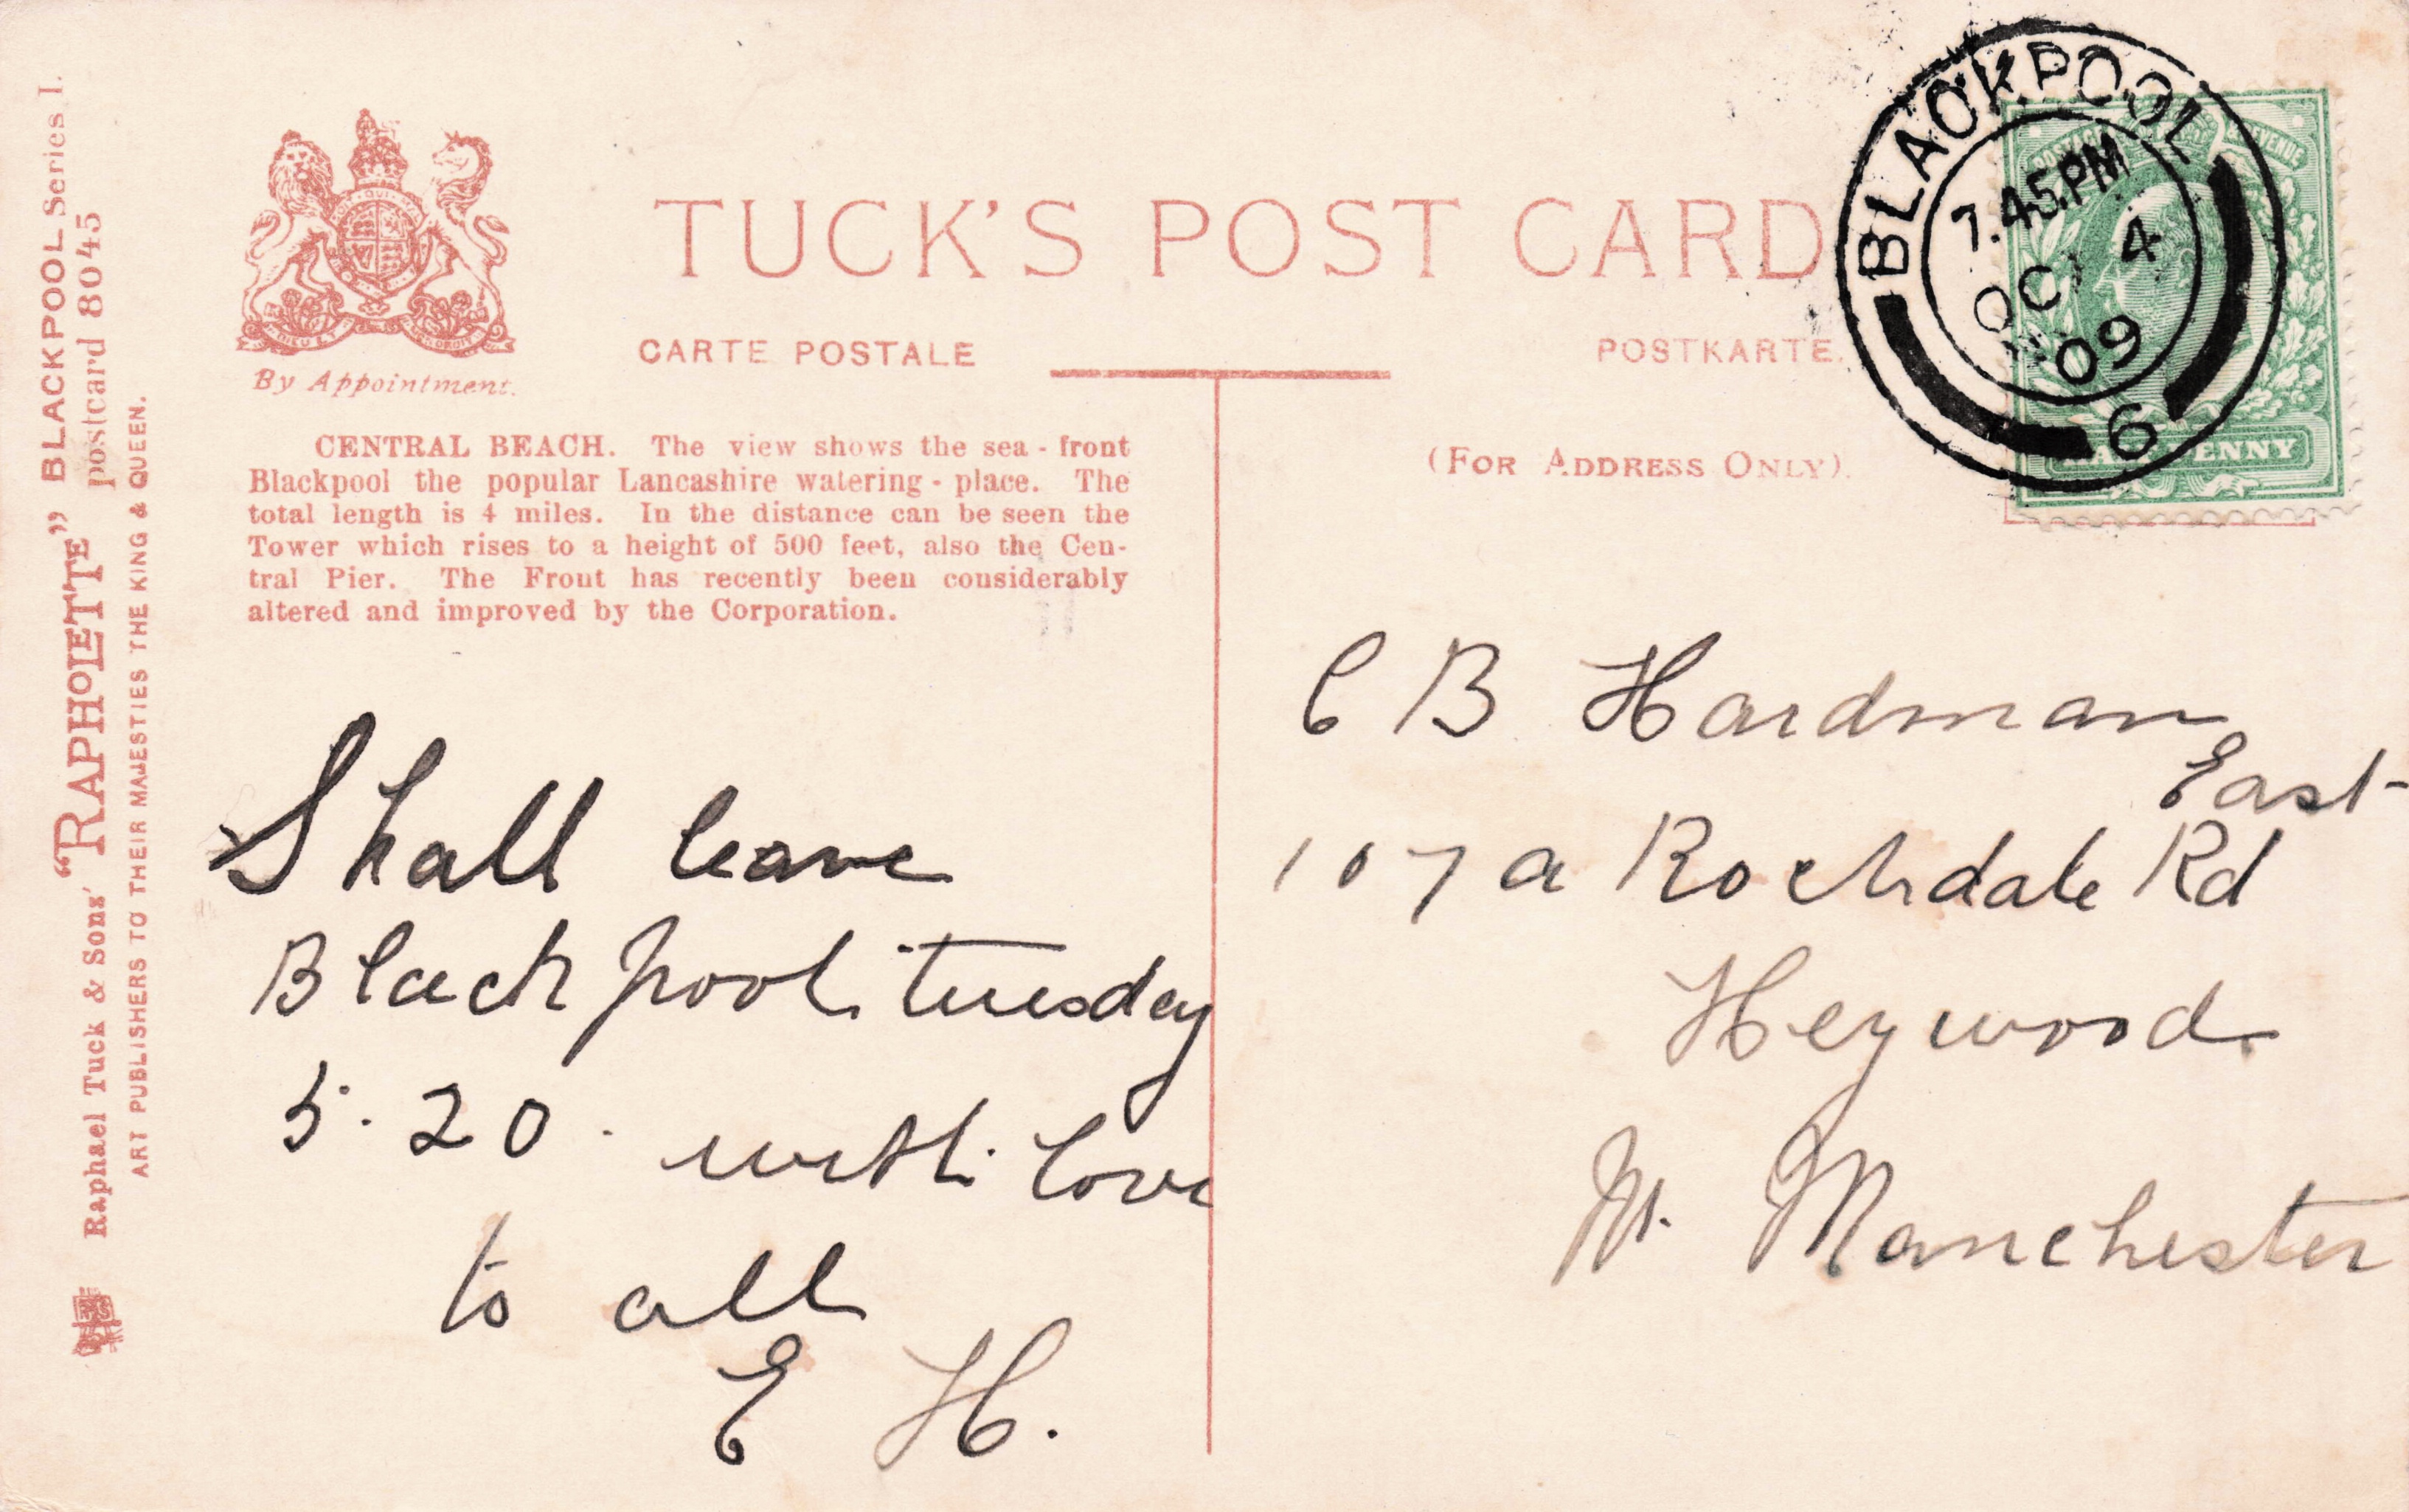 Raphael Tuck & Sons' “RAPHOLETTE” BLACKPOOL Series I.
postcard 8045
ART PUBLISHERS TO THEIR MAJESTIES THE KING & QUEEN.
By Appointment.
TUCK'S POST CARD
CARTE POSTALE
POSTKARTE.
(FOR ADDRESS ONLY).
BLACKPOOL
7.45PM
OC 4
09
6
CENTRAL BEACH. The view shows the sea - front
Blackpool the popular Lancashire watering - place. The
total length is 4 miles. In the distance can be seen the
Tower which rises to a height of 500 feet, also the Cen-
tral Pier. The Front has recently been considerably
altered and improved by the Corporation.
Shall leave
Blackpool tuesday
5.20. with love
to all
E H.
C B Hardman
East
107a Rochdale Rd
Heywood.
Nr. Manchester